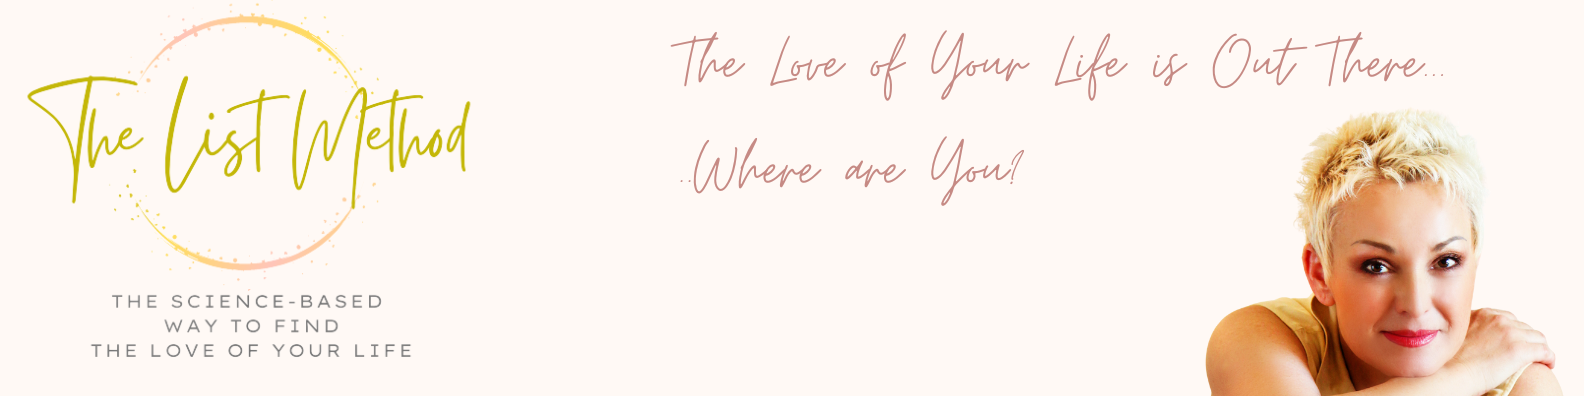 The List Method
THE SCIENCE-BASED
WAY TO FIND
THE LOVE OF YOUR LIFE
The Love of Your Life is Out There...
..Where are You?